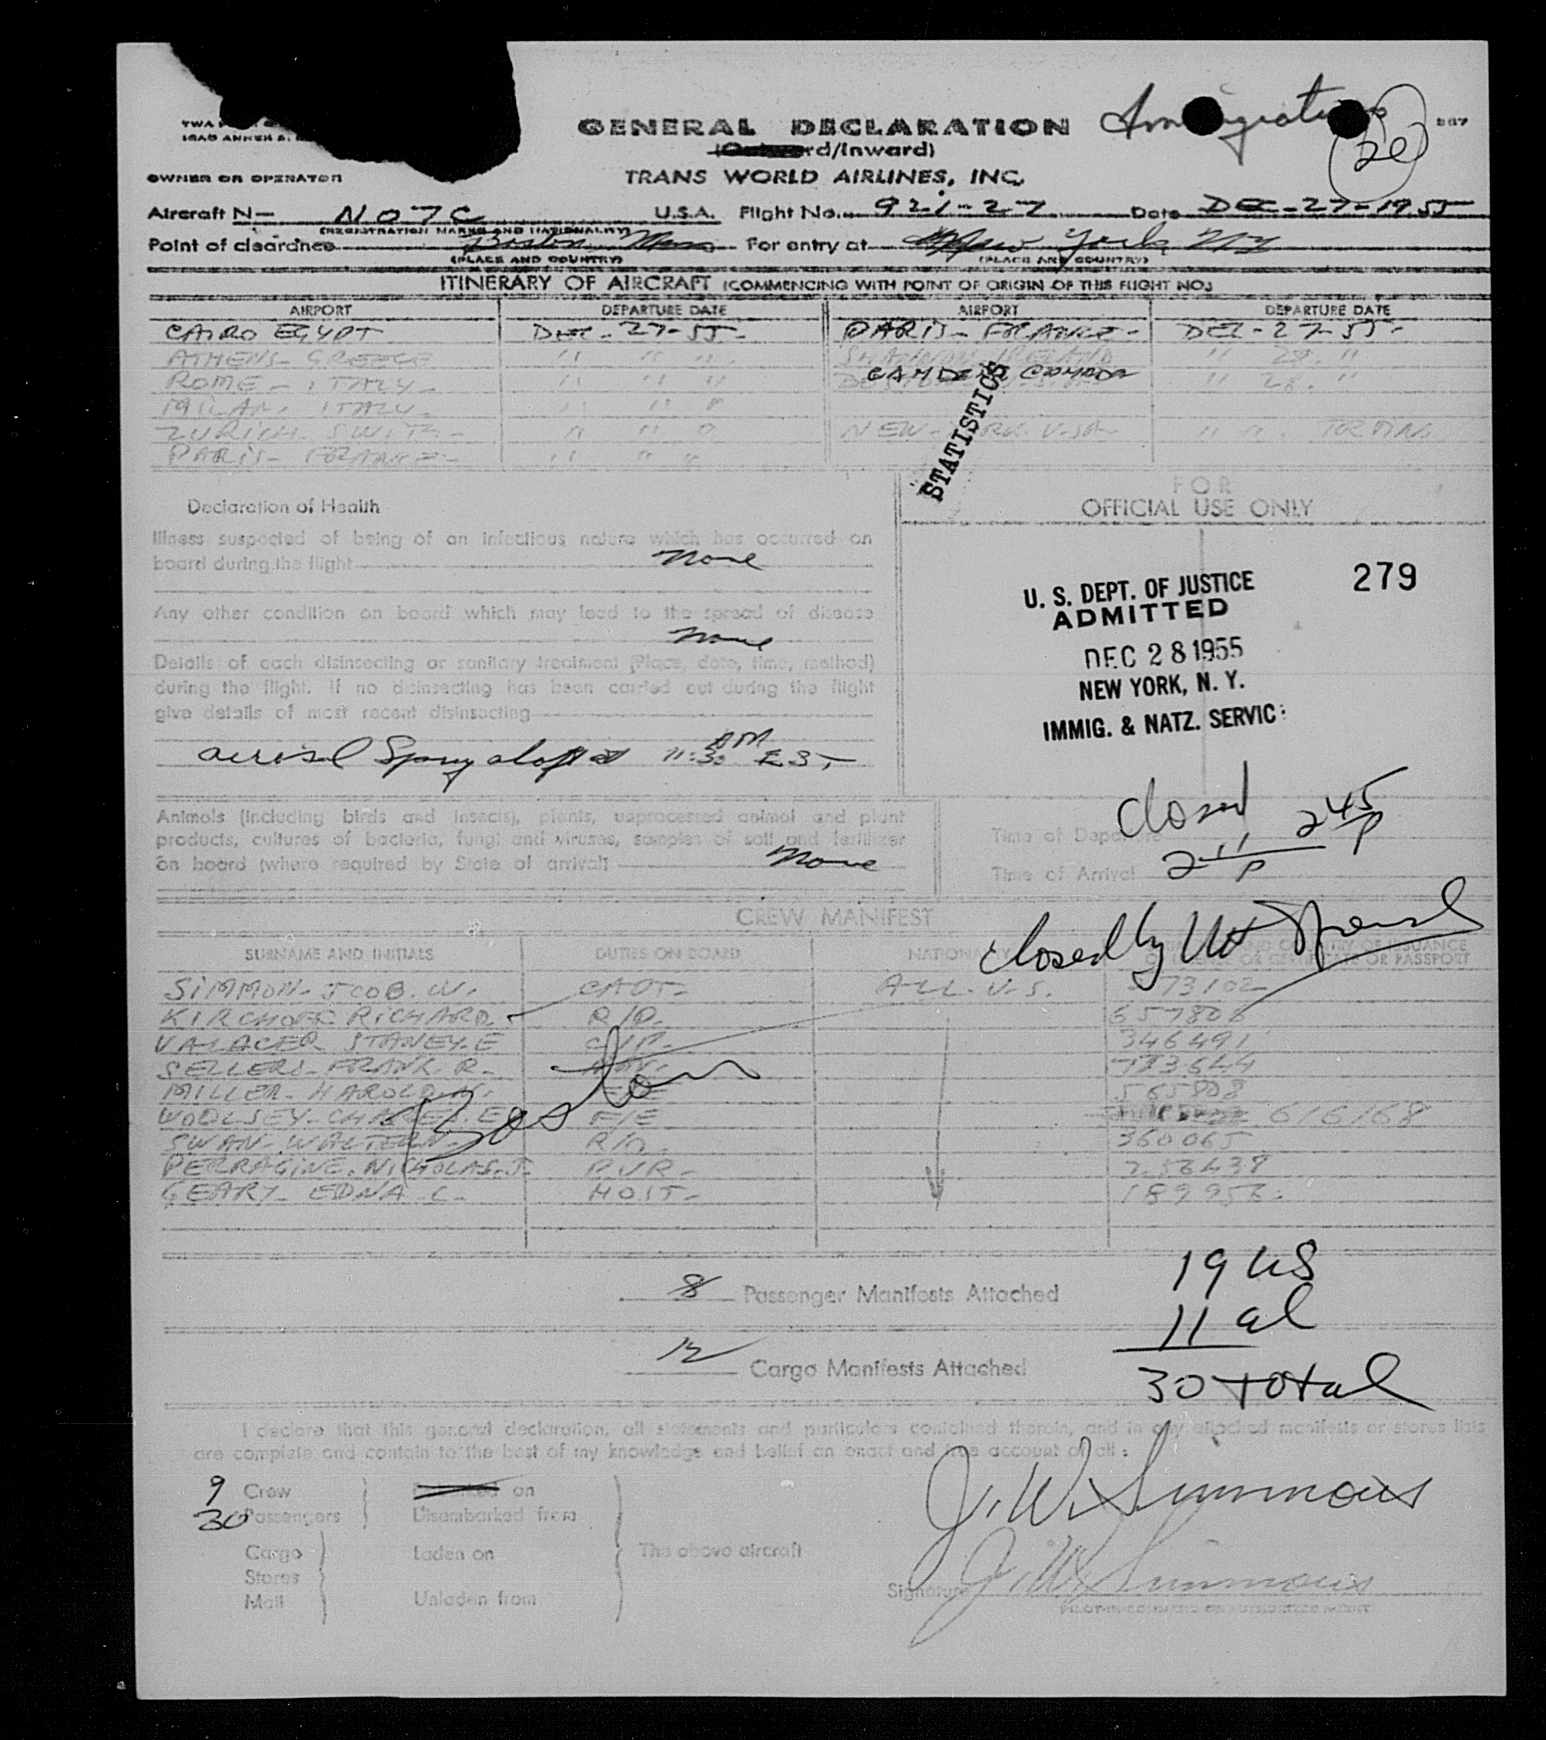 Immigration
GENERAL DECLARATION
rd/Inward)
20
TRANS WORLD AIRLINES, INC.
OWNER OR OPERATOR
Aircraft N- N07C U.S.A. Flight No. 921-27 Date DEC-27-1955
(REGISTRATION MARKS AND NATIONALITY)
Point of clearance Boston Mass For entry at New York NY
(PLACE AND COUNTRY) (PLACE AND COUNTRY)
ITINERARY OF AIRCRAFT (COMMENCING WITH POINT OF ORIGIN OF THIS FLIGHT NO.)
AIRPORT DEPARTURE DATE AIRPORT DEPARTURE DATE
CAIRO EGYPT DEC-27-55- PARIS-FRANCE- DEC-27-55-
ATHENS-GREECE " " " SHANNON-IRELAND " 28. "
ROME-ITALY- " " " CANADA " 28. "
MILAN. ITALY. " " "
ZURICH. SWITZ- " " " NEW- U.S.A- " "
PARIS-FRANCE- " " "
STATISTICS
Declaration of Health
FOR
OFFICIAL USE ONLY
Illness suspected of being of an infectious nature which has occurred on
board during the flight None
279
U. S. DEPT. OF JUSTICE
ADMITTED
DEC 28 1955
NEW YORK, N. Y.
IMMIG. & NATZ. SERVIC
Any other condition on board which may lead to the spread of disease
None
Details of each disinsecting or sanitary treatment (Place, date, time, method)
during the flight. If no disinsecting has been carried out during the flight
give details of most recent disinsecting
aerosol Spray aloft at 11:30 AM EST
Animals (including birds and insects), plants, unprocessed animal and plant
products, cultures of bacteria, fungi and viruses, samples of soil and fertilizer
on board (where required by State of arrival) None
Time of Departure closed 245 P
Time of Arrival 211 P
CREW MANIFEST
closed by
SURNAME AND INITIALS DUTIES ON BOARD NATIONALITY OR CERTIFICATE OR PASSPORT
SIMMON-JCOB.W. CAPT- ALL-U.S. 573102
KIRCHOFF RICHARD- R/P- 657806
VALACER STANEY.E C/P. 346491
SELLERS-FRANK.R- NAV- 783644
MILLER-HAROLD F/E 565808
WOOLSEY-CHARLES E F/E 616168
SWAN-WALTER R/O. 360065
PERRAGINE.NICHOLAS.J- PUR- 256438
GEARY-EDNA.C- HOST- 189958-
Boston
8 Passenger Manifests Attached
12 Cargo Manifests Attached
19 US
11 al
30 total
I declare that this general declaration, all statements and particulars contained therein, and in any attached manifests or stores lists
are complete and contain to the best of my knowledge and belief an exact and true account of all:
9 Crew on
30 Passengers Disembarked from
Cargo Laden on The above aircraft
Stores
Mail Unladen from
J. W. Simmons
Signature J. W. Simmons
PILOT-IN-COMMAND OR AUTHORIZED AGENT